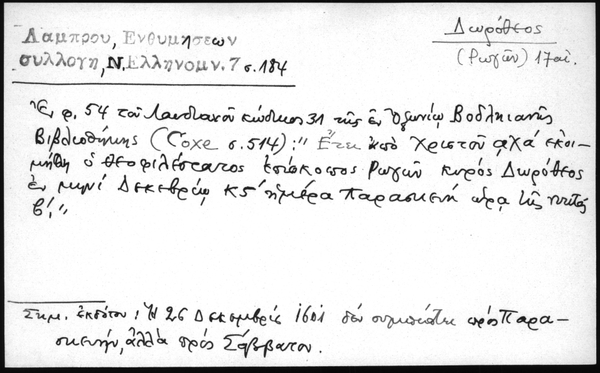 Λαμπρου, Ενθυμησεων
συλλογη, Ν. Ελληνομν. 7 σ. 184
Δωρόθεος
(Ρωγῶν) 17 αἰ.
Ἐν φ. 54 τοῦ Λαυδιανοῦ κώδικος 31 τῆς ἐν Ὀξωνίῳ Βοδληιανῆς
Βιβλιοθήκης (Coxe σ. 514): "Ἔτει ἀπὸ Χριστοῦ αχά ἐκοι-
μήθη ὁ θεοφιλέστατος ἐπίσκοπος Ρωγῶν κυρὸς Δωρόθεος
ἐν μηνί Δεκεβρίῳ κς΄ ἡμέρα Παρασκευή ὥρᾳ τῆς νυκτός
β΄."
Σημ. ἐκδότου: Ἡ 26 Δεκεμβρίου 1601 δέν συμπίπτει πρός Παρα-
σκευήν, ἀλλά πρός Σάββατον.